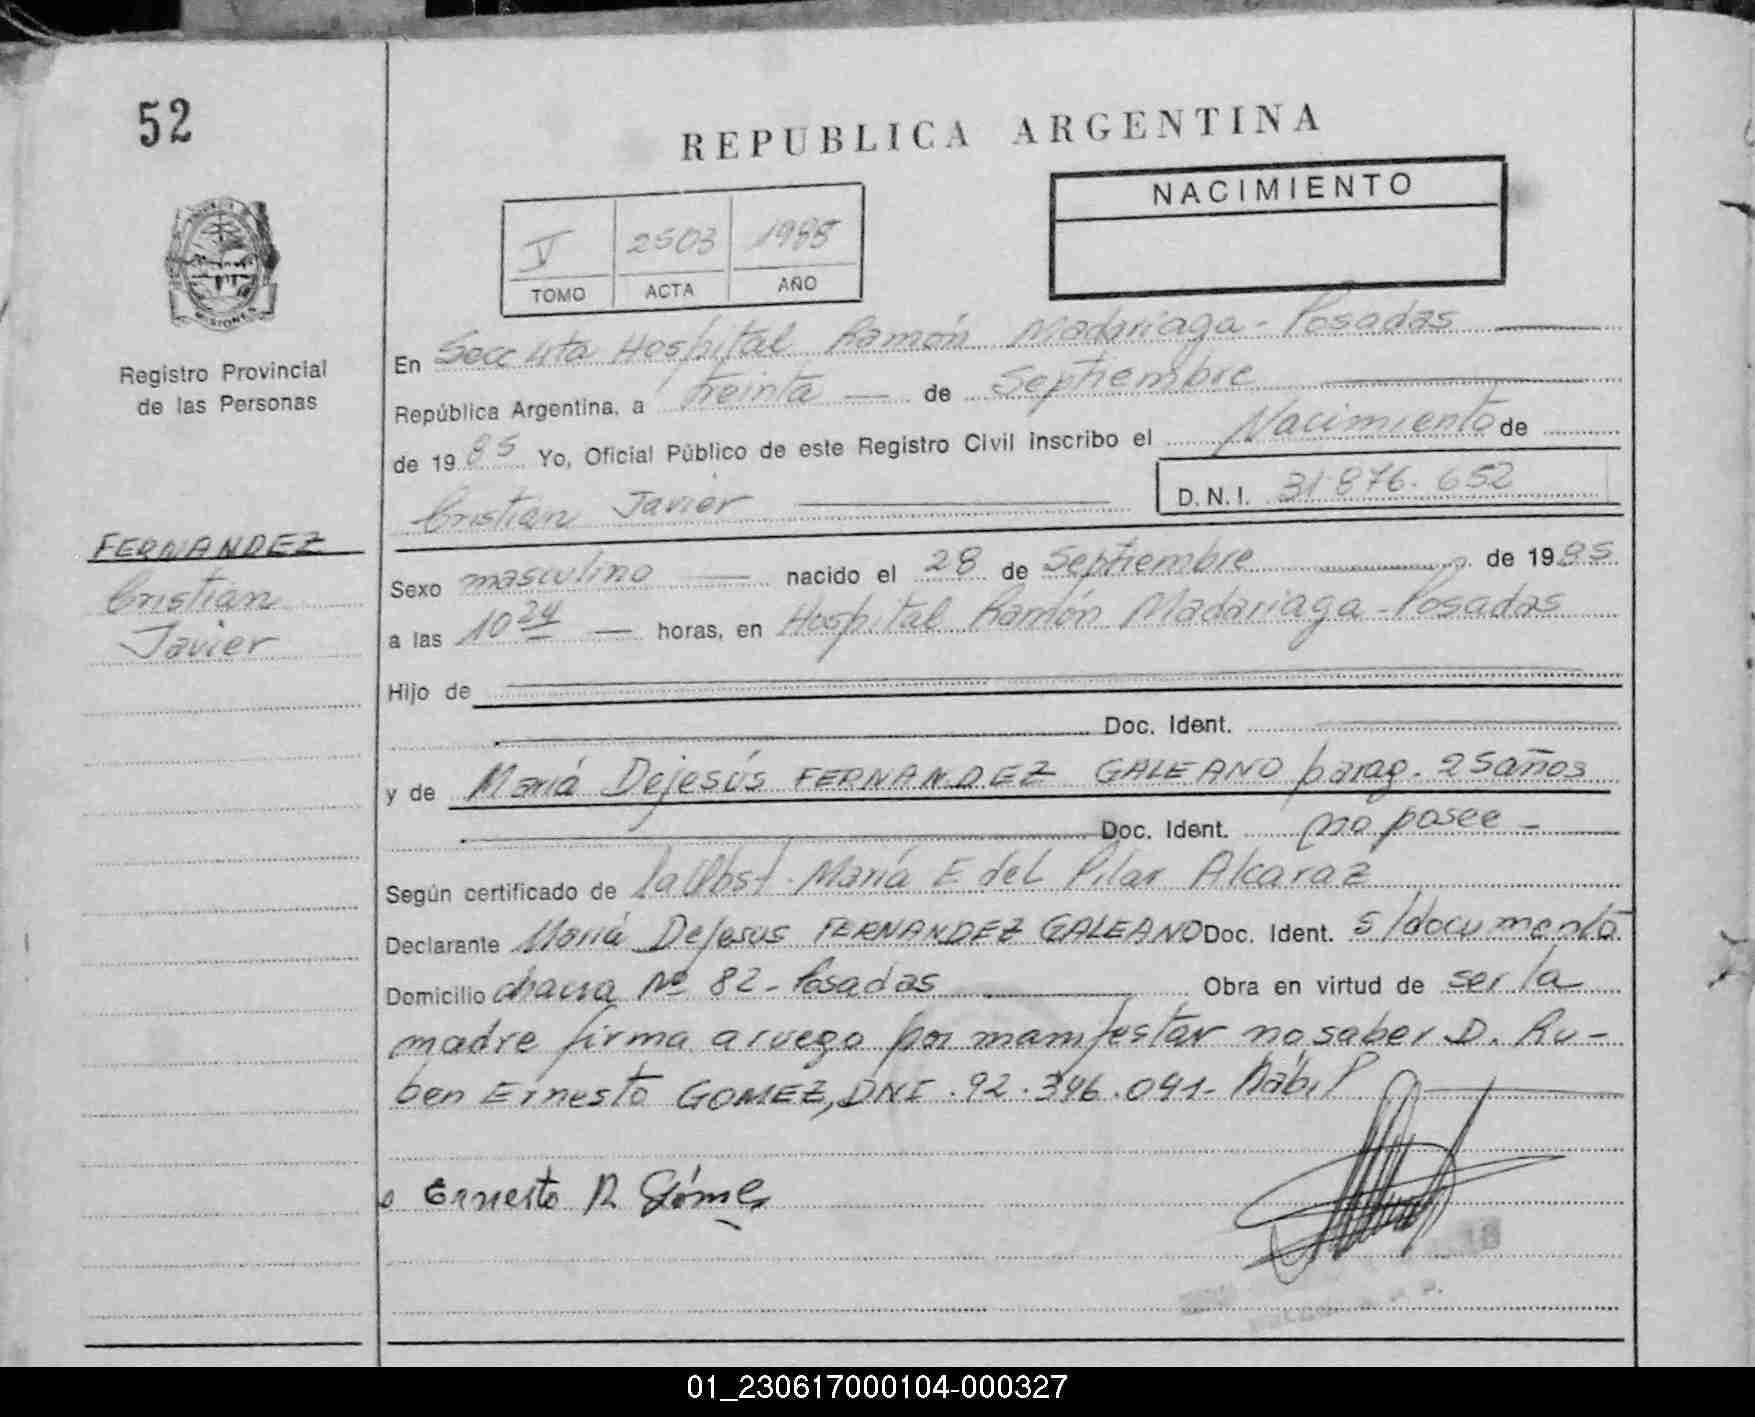 52
REPUBLICA ARGENTINA
NACIMIENTO
V 2503 1985
TOMO ACTA AÑO
MISIONES
Registro Provincial
de las Personas
En Secc 4ta Hospital Ramón Madariaga - Posadas
República Argentina, a treinta — de Septiembre
de 1985 Yo, Oficial Público de este Registro Civil inscribo el Nacimiento de
Cristian Javier D.N.I. 31.876.652
FERNANDEZ
Cristian
Javier
Sexo masculino — nacido el 28 de Septiembre de 1985
a las 10 24 — horas, en Hospital Ramón Madariaga - Posadas
Hijo de
Doc. Ident.
y de María Dejesús FERNANDEZ GALEANO parag. 25 años
Doc. Ident. no posee -
Según certificado de la Obst. María E del Pilar Alcaraz
Declarante María Dejesus FERNANDEZ GALEANO Doc. Ident. s/documento
Domicilio chacra Nº 82 - Posadas Obra en virtud de ser la
madre firma a ruego por manifestar no saber D. Ru-
ben Ernesto GOMEZ, DNI. 92.346.041 - hábil
Ernesto R Gómez
01_230617000104-000327